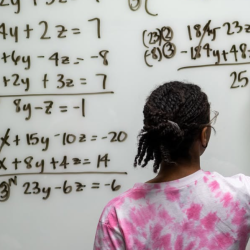 4y + 2z = 7
+6y - 4z = -8
+2y + 3z = 7
8y - z = -1
x + 15y - 10z = -20
x + 8y + 4z = 14
23y - 6z = -6
(23)(2
(-8)(3
184y - 23z
-184y + 48z
25